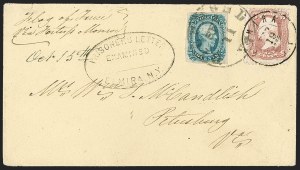 Flag of Truce
via Fortress Monroe
Oct. 15th
PRISONER'S LETTER
EXAMINED
ELMIRA, N.Y.
Mrs. Wm. S. McCandlish
Petersburg
Va